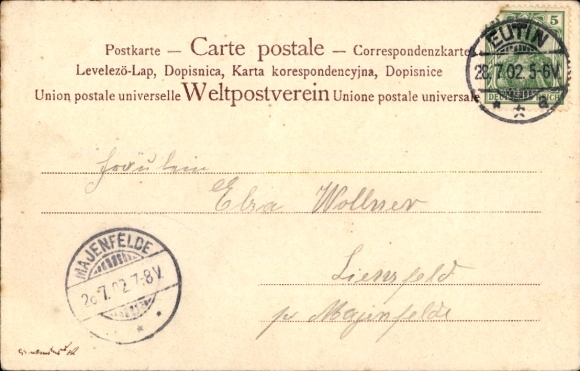 Postkarte — Carte postale — Correspondenzkarte
Levelező-Lap, Dopisnica, Karta korespondencyjna, Dopisnice
Union postale universelle Weltpostverein Unione postale universale
5
DEUTSCHES REICH
EUTIN
28.7.02.5-6V
* * a
Fräulein
Elsa Wollner
Lienzfeld
pr Majenfelde
MAJENFELDE
28.7.02 7-8V
* *